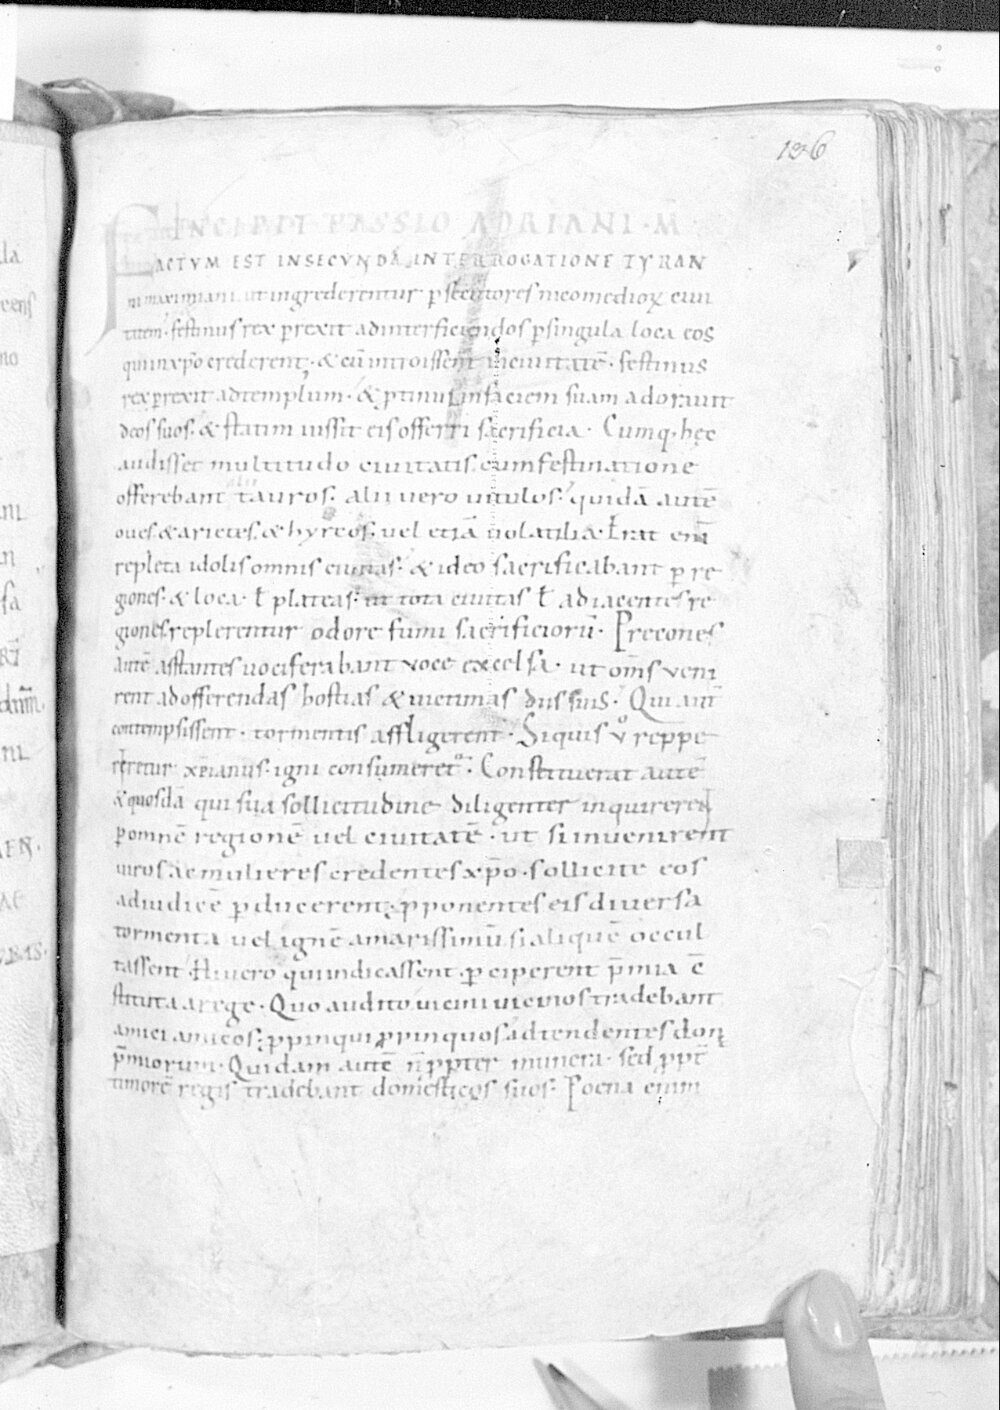 126
INCIPIT PASSIO ADRIANI · M̄
FACTVM EST IN SECVNDA INTERROGATIONE TYRAN
ni maximiani. ut ingrederentur p̄secutores nicomedioꝝ ciui
tatem · festinus rex perrexit ad interficiendos p̱ singula loca eos
qui in xp̄o crederent, · & cū introissent in ciuitatē · festinus
rex perrexit ad templum · & ꝓtinus in faciem suam adorauit
deos suos · & statim iussit eis offerri sacrificia · Cumq · hęc
audisset multitudo ciuitatis. cum festinatione
offerebant tauros · alii vero uitulos · quidā autē
oues · & arietes · & hyrcos · uel etiā uolatilia · Erat eni̅
repleta idolis omnis ciuitas · & ideo sacrificabant ꝑ re
giones · & loca · ł plateas · ut tota ciuitas ł adiacentes re
giones replerentur odore fumi sacrificiorū · Precones
autē astantes uociferabant voce excelsa · ut om̄s veni
rent ad offerendas hostias & uictimas diis suis · Qui aut̄
contempsissent · tormentis affligerent · Siquis v̊ reppe
riretur xp̄ianus · igni consumeret᷑ · Constituerat autē
& quosdā qui sua sollicitudine diligenter inquirerent
ꝑ omnē regionē uel ciuitatē · ut si inuenirent
uiros ac mulieres credentes xp̄o · sollicite eos
ad iudicē ꝑducerent · ꝓponentes eis diuersa
tormenta uel ignē amarissimū si aliquē occul
tassent · Hi uero qui indicassent · ꝑciperent p̄mia c̄
stituta a rege · Quo audito uicini uicinos tradebant
amici amicos · ꝓpinqui ꝓpinquos adtendentes donꝝ
p̄miorum · Quidam autē n̄ ꝓpter munera · sed ꝓpt̄
timorē regis tradebant domesticos suos · Poena enim